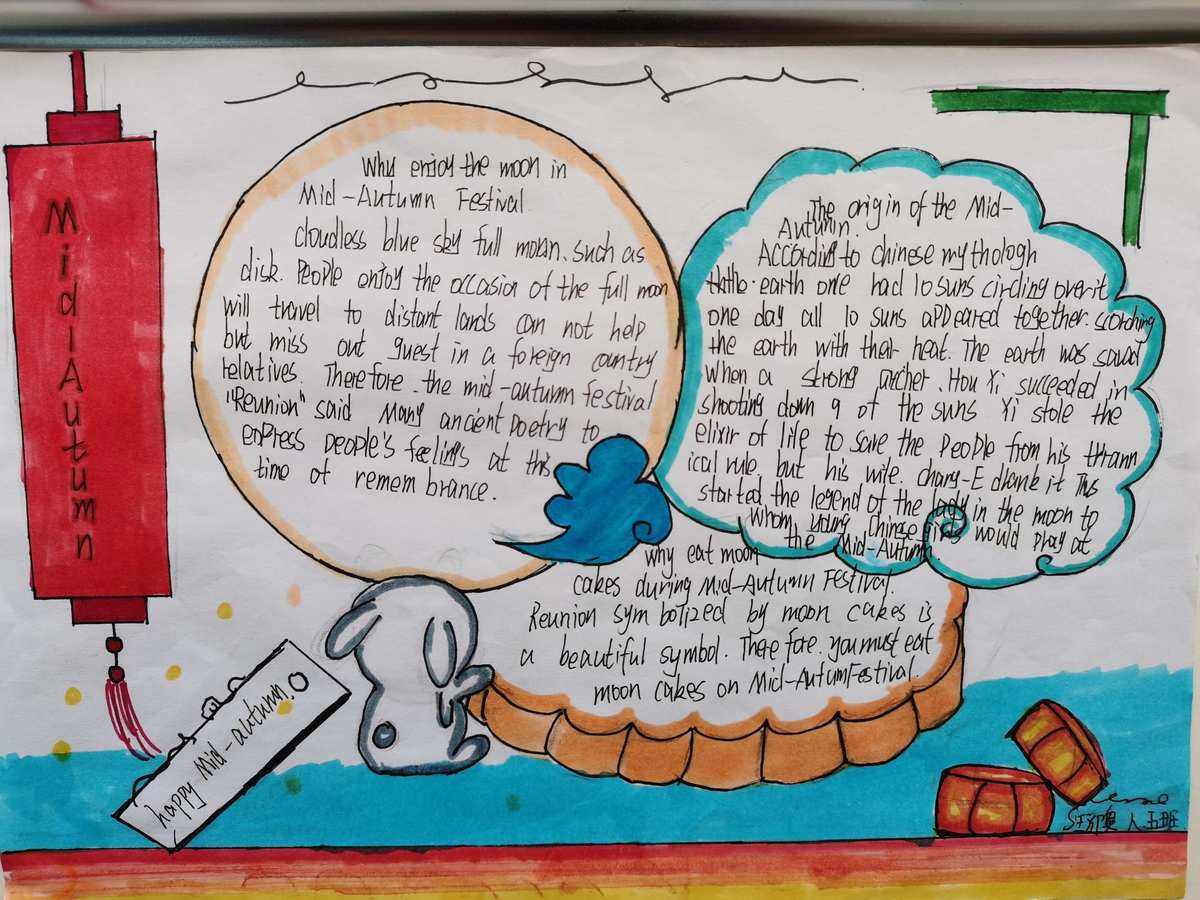 Mid Autumn
Why enjoy the moon in
Mid-Autumn Festival
cloudless blue sky full moon, such as
disk. People enjoy the occasion of the full moon
will travel to distant lands can not help
but miss out guest in a foreign country
relatives. Therefore. the mid-autumn festival
"Reunion" said Many ancient poetry to
express people's feelings at this
time of remembrance.
The origin of the Mid-
Autumn.
According to chinese mythologh
earth one had 10 suns circling over it
one day all 10 suns appeared together. scorching
the earth with their heat. The earth was saved
when a strong archer. Hou Yi succeeded in
shooting down 9 of the suns Yi stole the
elixir of life to save the people from his tyrann
ical rule, but his wife. Chang-E drank it This
started the legend of the lady in the moon to
whom young Chinese girls would pray at
the Mid-Autumn.
why eat moon
cakes during Mid-Autumn Festival.
Reunion symbolized by moon cakes is
a beautiful symbol. Therefore. you must eat
moon cakes on Mid-Autum Festival.
happy Mid-autumn.
五班